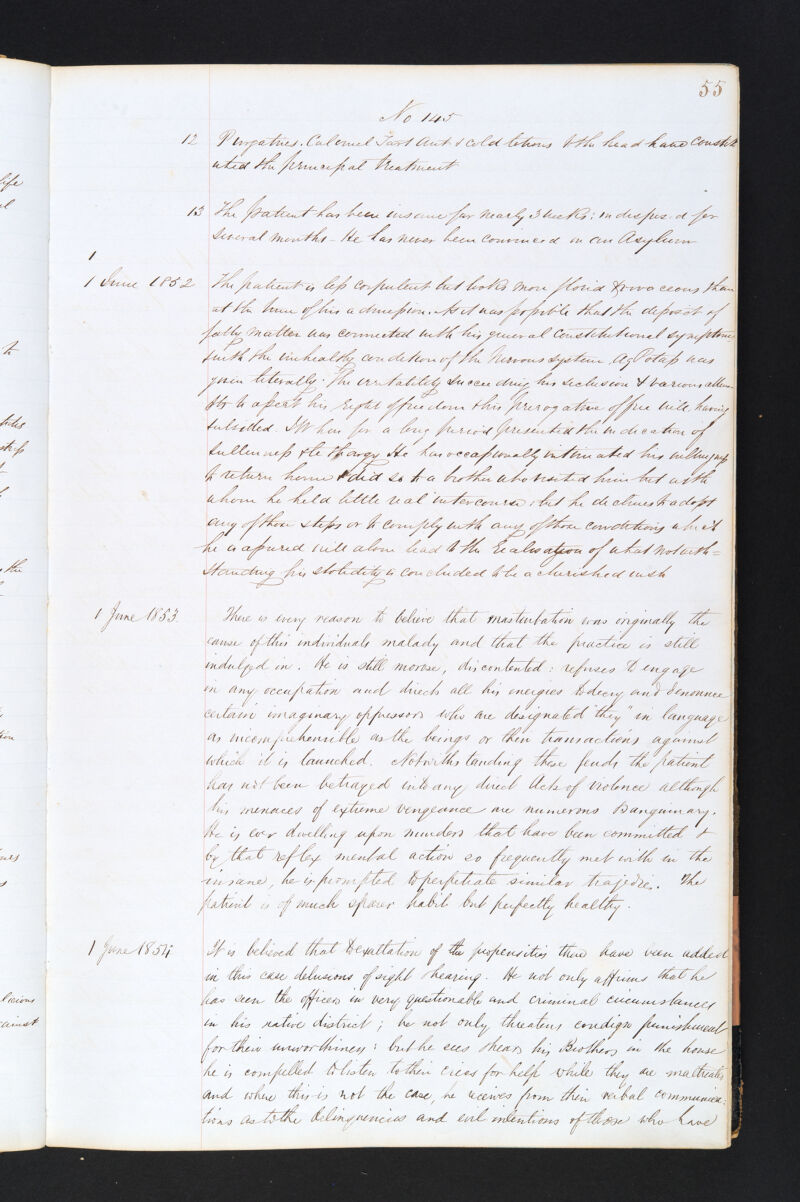 55
No 145
12 Purgatives. Calomel Tart Ant & cold lotions to the head have constit
uted the principal treatment
13 The patient has been insane for nearly 3 weeks; indisposed for
several months - He has never been confined in an Asylum
1
1 June 1852 The patient is less corpulent but looks more florid & vivaceous than
at the time of his admission. As it was possible that the deposit of
fatty matter was connected with his general constitutional symptoms
& with the unhealthy condition of the nervous system Aq Potass was
given liberally. The irritability succeeding his seclusion & various attem
pts to assert his right of freedom & his prerogative of free will having
subsided. It has for a long period presented the indication of
sullenness & lethargy. He has occasionally intimated his willingness
to return home & did so to a brother who visited him but with
whom he held little real intercourse; but he declines to adopt
any of those steps or to comply with any of those conditions which
he is assured will alone lead to the realisation of what notwith=
standing his stolidity is concluded to be a cherished wish
1 June 1853. There is every reason to believe that masturbation was originally the
cause of this individuals malady and that the practice is still
indulged in. He is still morose, discontented: refuses to engage
in any occupation and directs all his energies to decry and denounce
certain imaginary oppressors who are designated "they" in language
as incomprehensible as the beings or their transactions against
which it is launched. Notwithstanding these feuds the patient
has not been betrayed into any direct Acts of violence although
his menaces of extreme vengeance are numerous & sanguinary.
He is ever dwelling upon murders that have been committed &
by that reflex mental action so frequently met with in the
insane, he is prompted to perpetrate similar tragedies. The
patient is of much sparer habit but perfectly healthy.
1 June 1854 It is believed that to exaltation of the propensities there have been added
in this case delusions of sight & hearing. He not only affirms that he
has seen the officers in very questionable and criminal circumstances
in his native district; he not only threatens condign punishment
for their unworthiness: but he sees & hears his Brothers in the house
he is compelled to listen to their cries for help while they are maltreated
and where this is not the case, he receives from their verbal communica=
tions as to the delinquencies and evil intentions of those who have